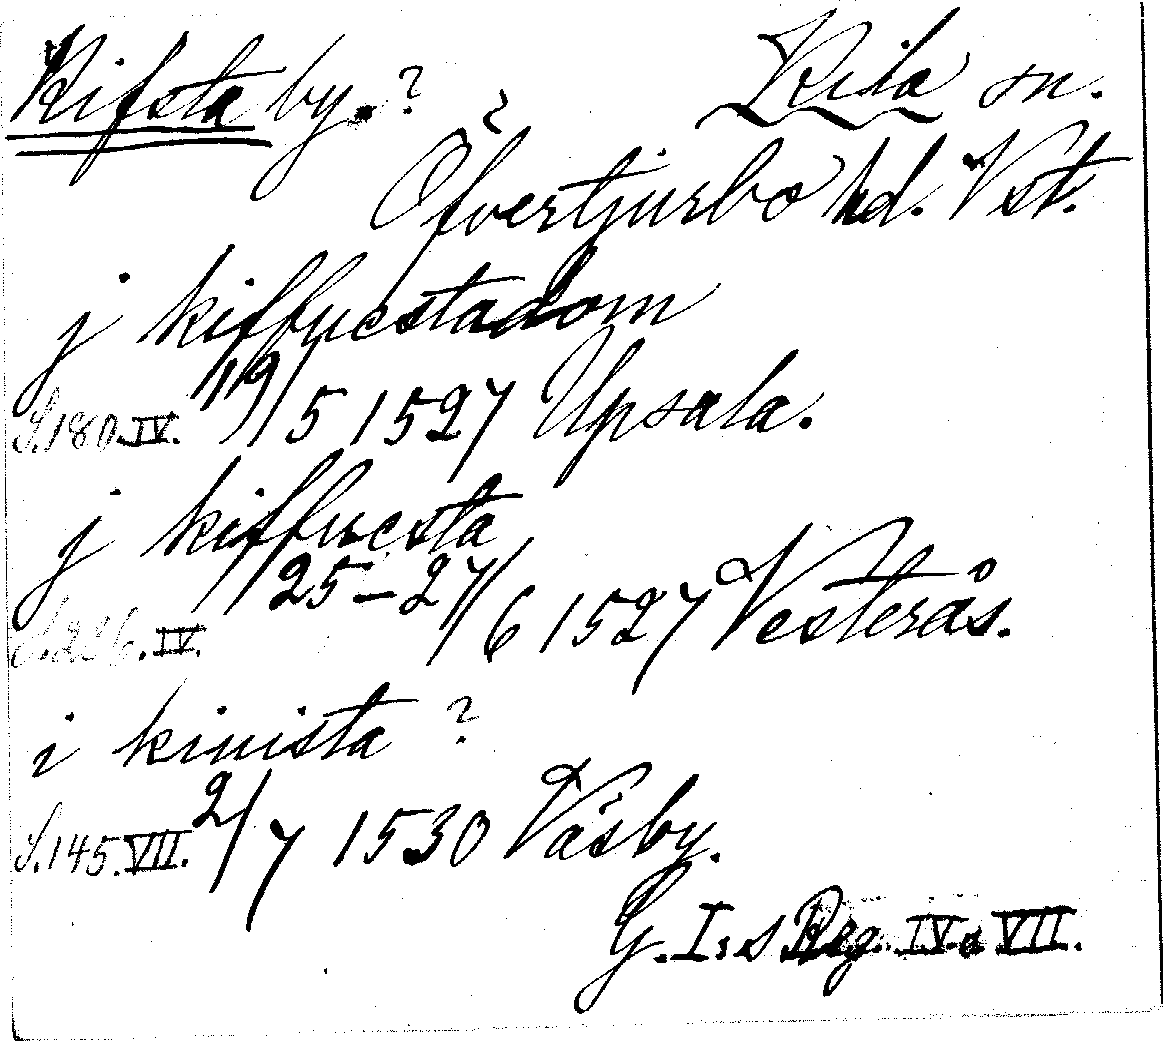 Kifsta by. ? Kila sn.
Öfvertjurbo hd. Vst.
j kiffuestadom
S.180.IV. 19/5 1527 Upsala.
j kiffuesta
S.226.IV. 25-27/6 1527 Vesterås.
i kiuista ?
S.145.VII. 2/7 1530 Väsby.
G. I:s Reg. IV o VII.